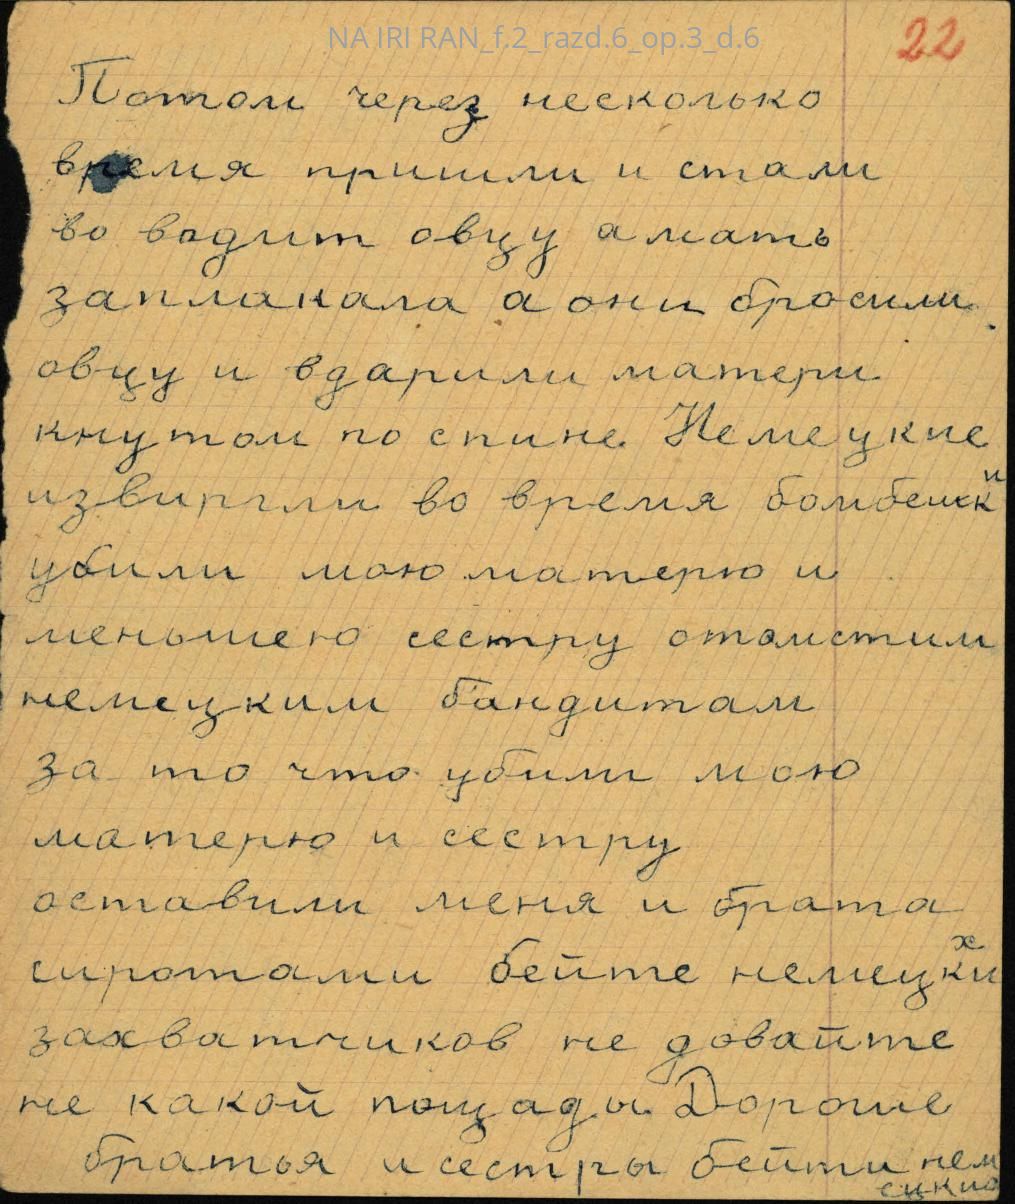 NA IRI RAN_f.2_razd.6_op.3_d.6
22
Потом через несколько
время пришли и стали
во водит овцу а мать
заплакала а они бросили
овцу и вдарили матери
кнутом по спине Немецкие
извиргли во время бомбешки
убили мою матерю и
меньшею сестру отомстим
немецким бандитам
за то что убили мою
матерю и сестру
оставили меня и брата
сиротами бейте немецких
захватчиков не довайте
не какой пощады Дорогие
братья и сестры бейти нем
ецкио